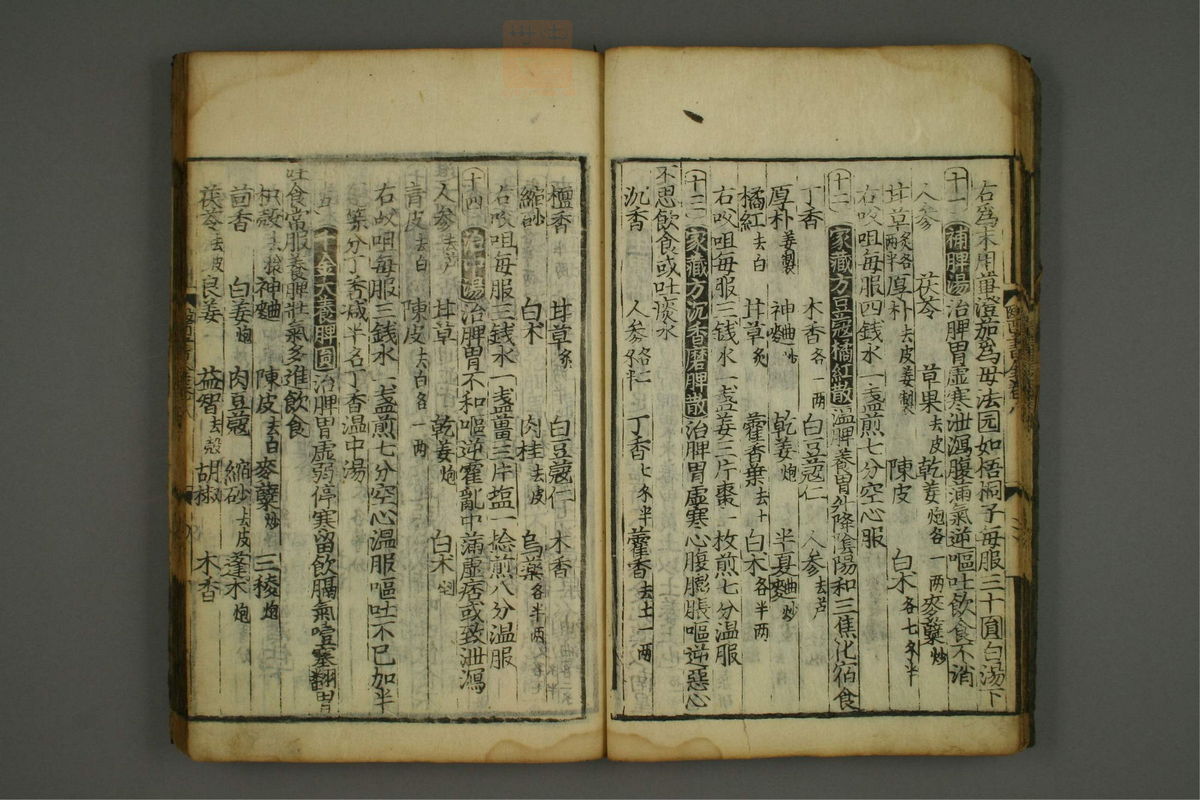 右為末用蓽澄茄為母法园如梧桐子每服三十圓白湯下
十一 補脾湯治脾胃虛寒泄瀉腹滿氣逆嘔吐飲食不消
人參 茯苓 草果去皮 乾姜炮各一两 麥蘖炒
甘草炙各一两半 厚朴去皮姜製 陳皮 白朮各七分半
右㕮咀每服四錢水一盞煎七分空心服
十二 家藏方豆蔻橘紅散温脾養胃升降陰陽和三焦化宿食
丁香 木香各一两 白豆蔻仁 人參去芦
厚朴姜製 神曲炒 乾姜炮 半夏曲炒
橘紅去白 甘草炙 藿香葉去土 白朮各半两
右㕮咀每服三錢水一盞姜三片棗一枚煎七分温服
十三 家藏方沉香磨脾散治脾胃虛寒心腹膨脹嘔逆惡心
不思飲食或吐痰水
沉香 人參各 丁香七分半 藿香去土一两
檀香半两 甘草炙 白豆蔻仁 木香
縮砂 白朮 肉桂去皮 烏藥各半两
右㕮咀每服三錢水一盞薑三片塩一捻煎八分温服
十四 治中湯治脾胃不和嘔逆霍亂中滿虛痞或致泄瀉
人參去芦 甘草 乾姜炮 白朮
青皮去白 陳皮去白各一两
右㕮咀每服三錢水一盞煎七分空心温服嘔吐不已加半
等分丁香减半名丁香温中湯
十五 千金大養脾圓治脾胃虛弱停寒留飲膈氣噎塞翻胃
吐食常服養脾壯氣多進飲食
枳殼去穰 神麯 陳皮去白 麥蘖炒 三稜炮
茴香 白姜炮 肉豆蔻 縮砂去皮 蓬朮炮
茯苓去皮 良姜 益智去殼 胡椒 木香